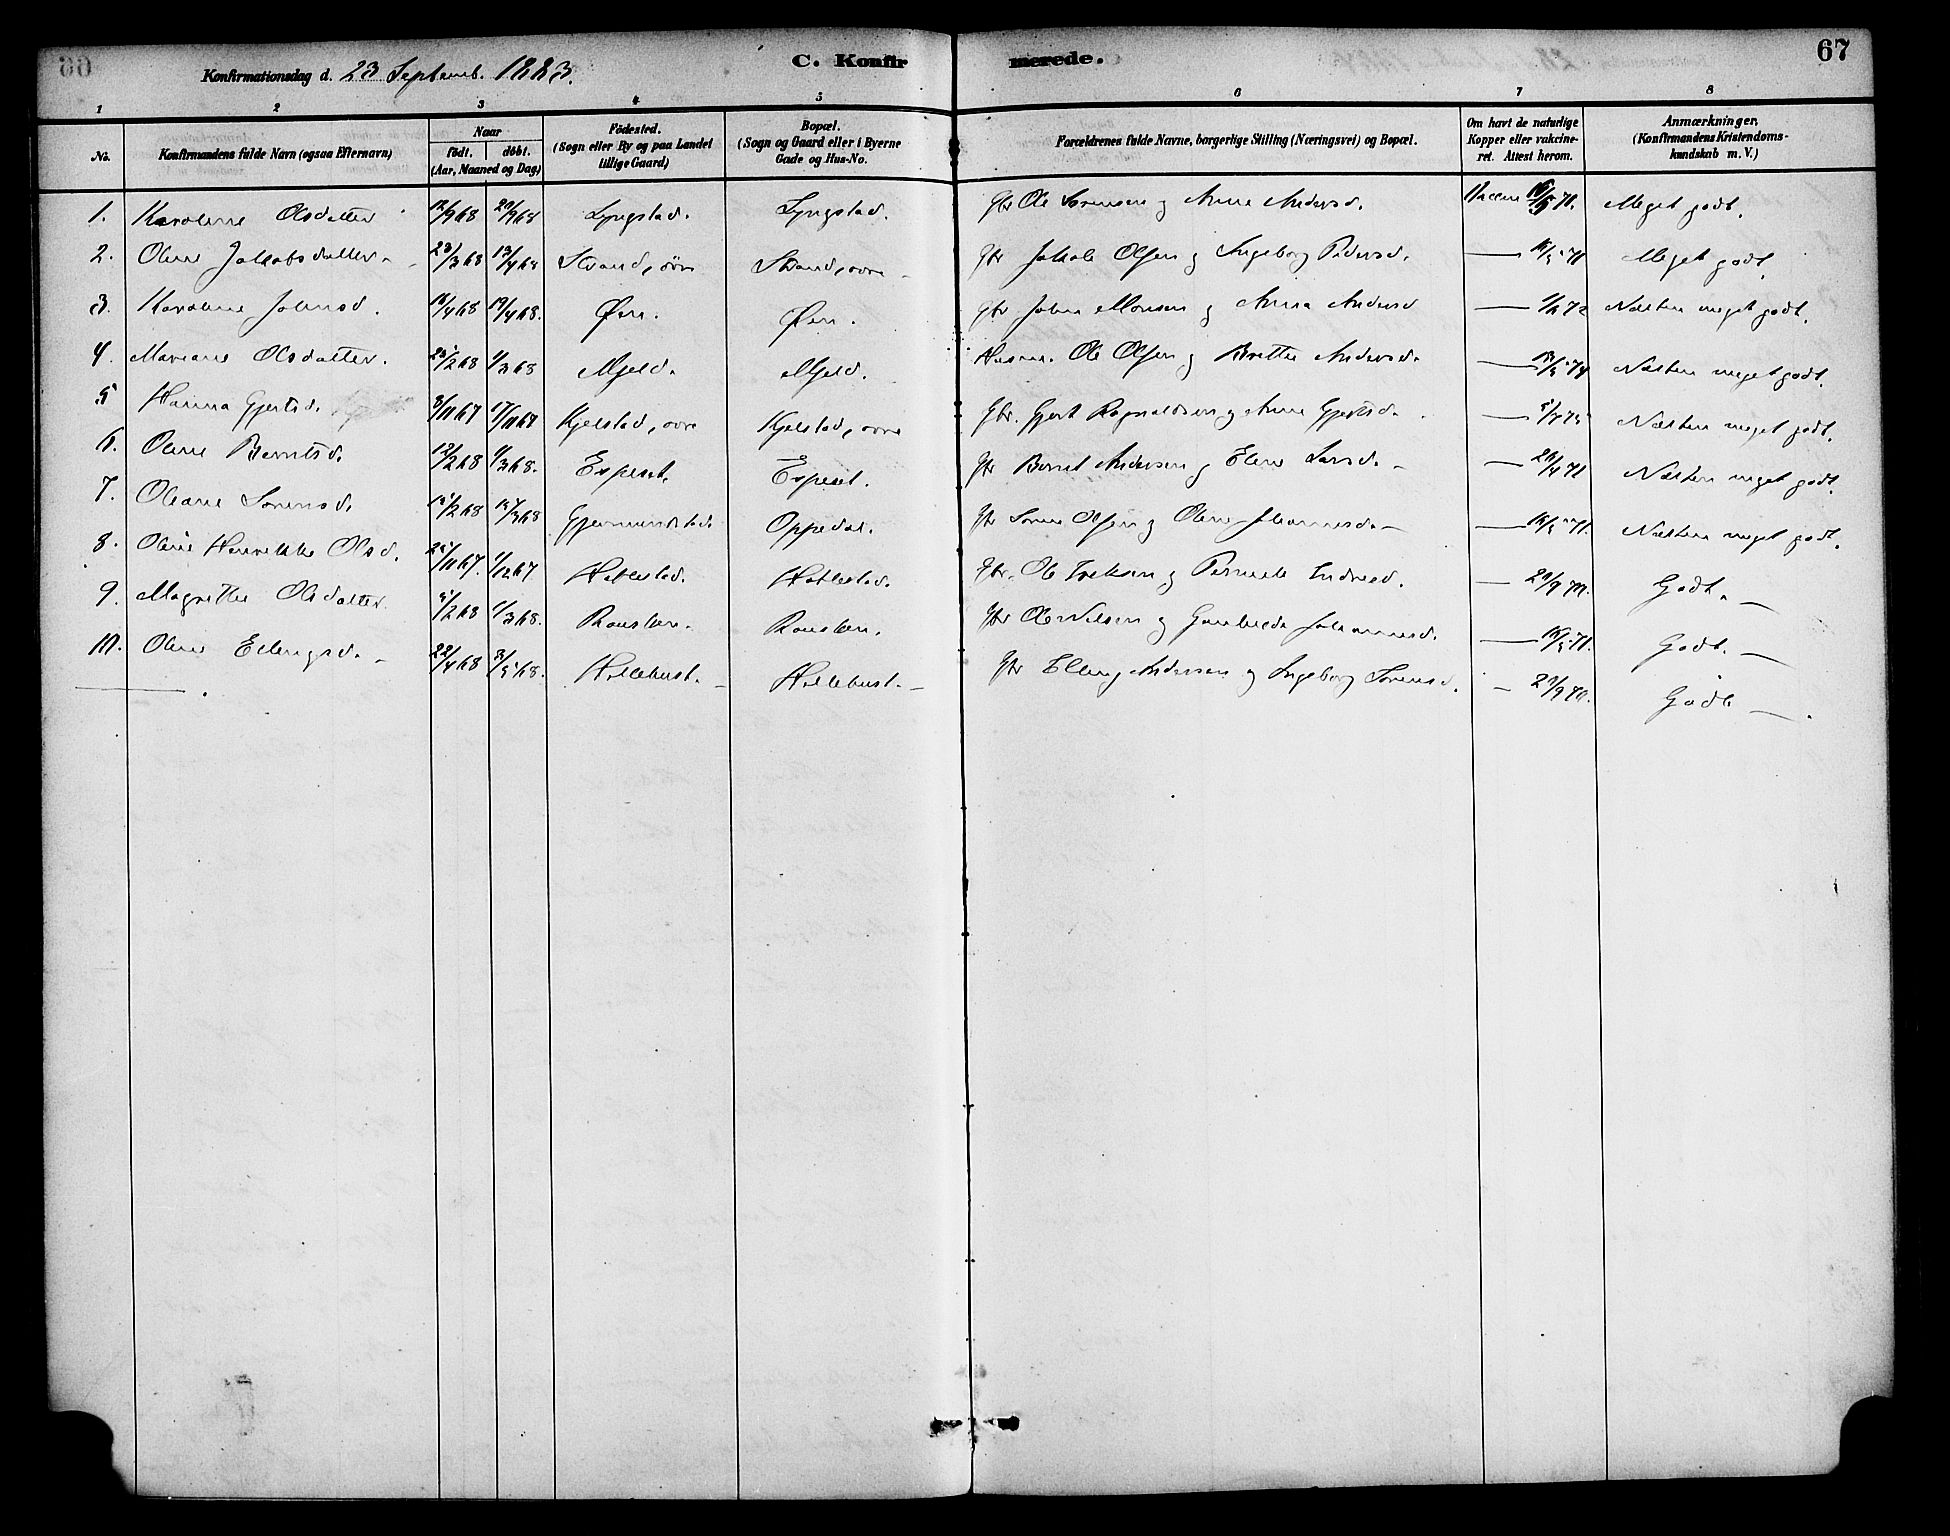 Konfirmationsdag d. 23 Septemb. 1883.
C. Konfirmerede.
67
1 2 3 4 5 6 7 8
No. Konfirmandens fulde Navn (ogsaa Efternavn) Naar født. døbt. (Aar, Maaned og Dag) Fødested. (Sogn eller By og paa Landet tillige Gaard) Bopæl. (Sogn og Gaard eller i Byerne Gade og Hus-No. Forældrenes fulde Navne, borgerlige Stilling (Næringsvei) og Bopæl. Om havt de naturlige Kopper eller vakcineret. Attest herom. Anmærkninger. (Konfirmandens Kristendomskundskab m. V.)
1. Karoline Olsdatter 12/9 68 20/9 68 Lyngstad. Lyngstad. Gbr Ole Sørensen og Anne Andersd. Vaccine 71. Meget godt.
2. Oline Jakobsdatter 23/3 68 13/4 68 Strand, øvre Strand, øvre Gbr Jakob Olsen og Ingeborg Pedersd. — 71 Meget godt.
3. Karoline Johnsd. 18/4 68 19/4 68. Øen. Øen. Gbr John Monsen og Anna Andersd — 72 Næsten meget godt.
4. Mariane Olsdatter. 25/2 68 1/3 68 Mjeld. Mjeld. Husm. Ole Olsen og Brette Andersd. — 74 Næsten meget godt.
5 Hanna Gjertsd. 8/11 67 17/11 67 Kjelstad, øvre Kjelstad, øvre Gbr. Gjert Ragnaldsen og Anne Gjertsd. — Næsten meget godt.
6. Oline Berntsd. 12/2 68 1/3 68. Espeset. Espeset. Gbr Bernt Andersen og Eline Larsd. — 71 Næsten meget godt.
7. Oleane Sørensd. /2 68 /3 68 Gjermundstad Oppedal. Gbr Søren Olsen og Oline Johannesd. — 71. Næsten meget godt.
8. Oline Henrikke Olsd. 25/11 67. 1/12 67 Hatlestad. Hatlestad. Gbr. Ole Iversen og Pernele Endresd. — 29/9 70. Godt. —
9. Magrette Olsdatter. /2 68 1/3 68. Rousten. Rousten. Gbr Ole Nilsen og Gunhilda Johannesd. — 71. Godt. —
10. Oline Ellingsd. 22/4 68 3/5 68. Hellebust. Hellebust. Gbr Elling Andersen og Ingeborg Sørensd. — 29/9 70. Godt —